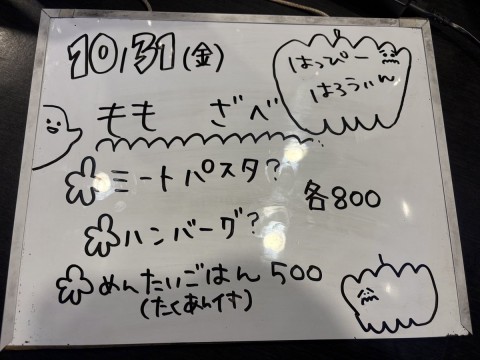 10/31(金)
はっぴー
はろうぃん
もも ざべ
ミートパスタ?
各800
ハンバーグ?
めんたいごはん 500
(たくあん付き)